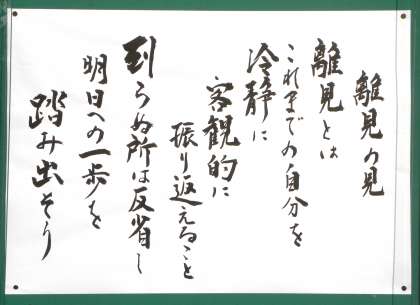 離見の見
離見とは
これまでの自分を
冷静に
客観的に
振り返えること
到らぬ所は反省し
明日への一歩を
踏み出そう